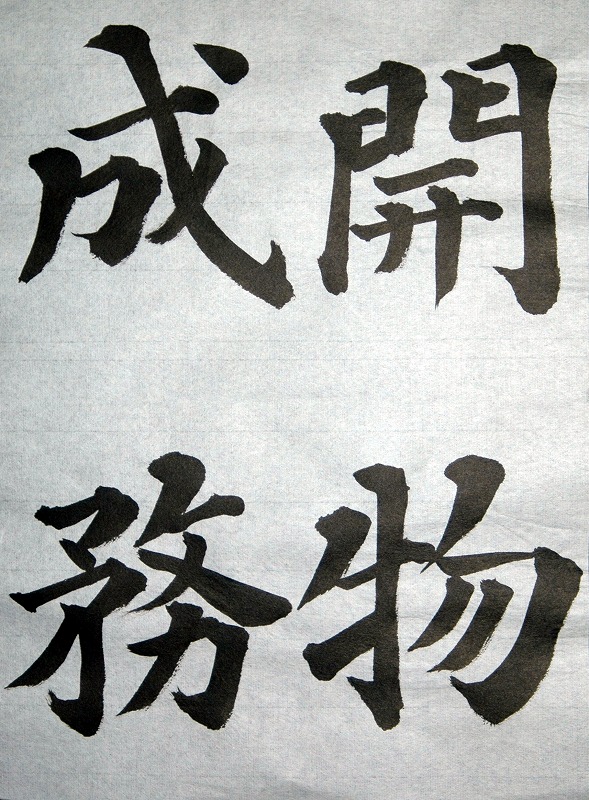 開物
成務